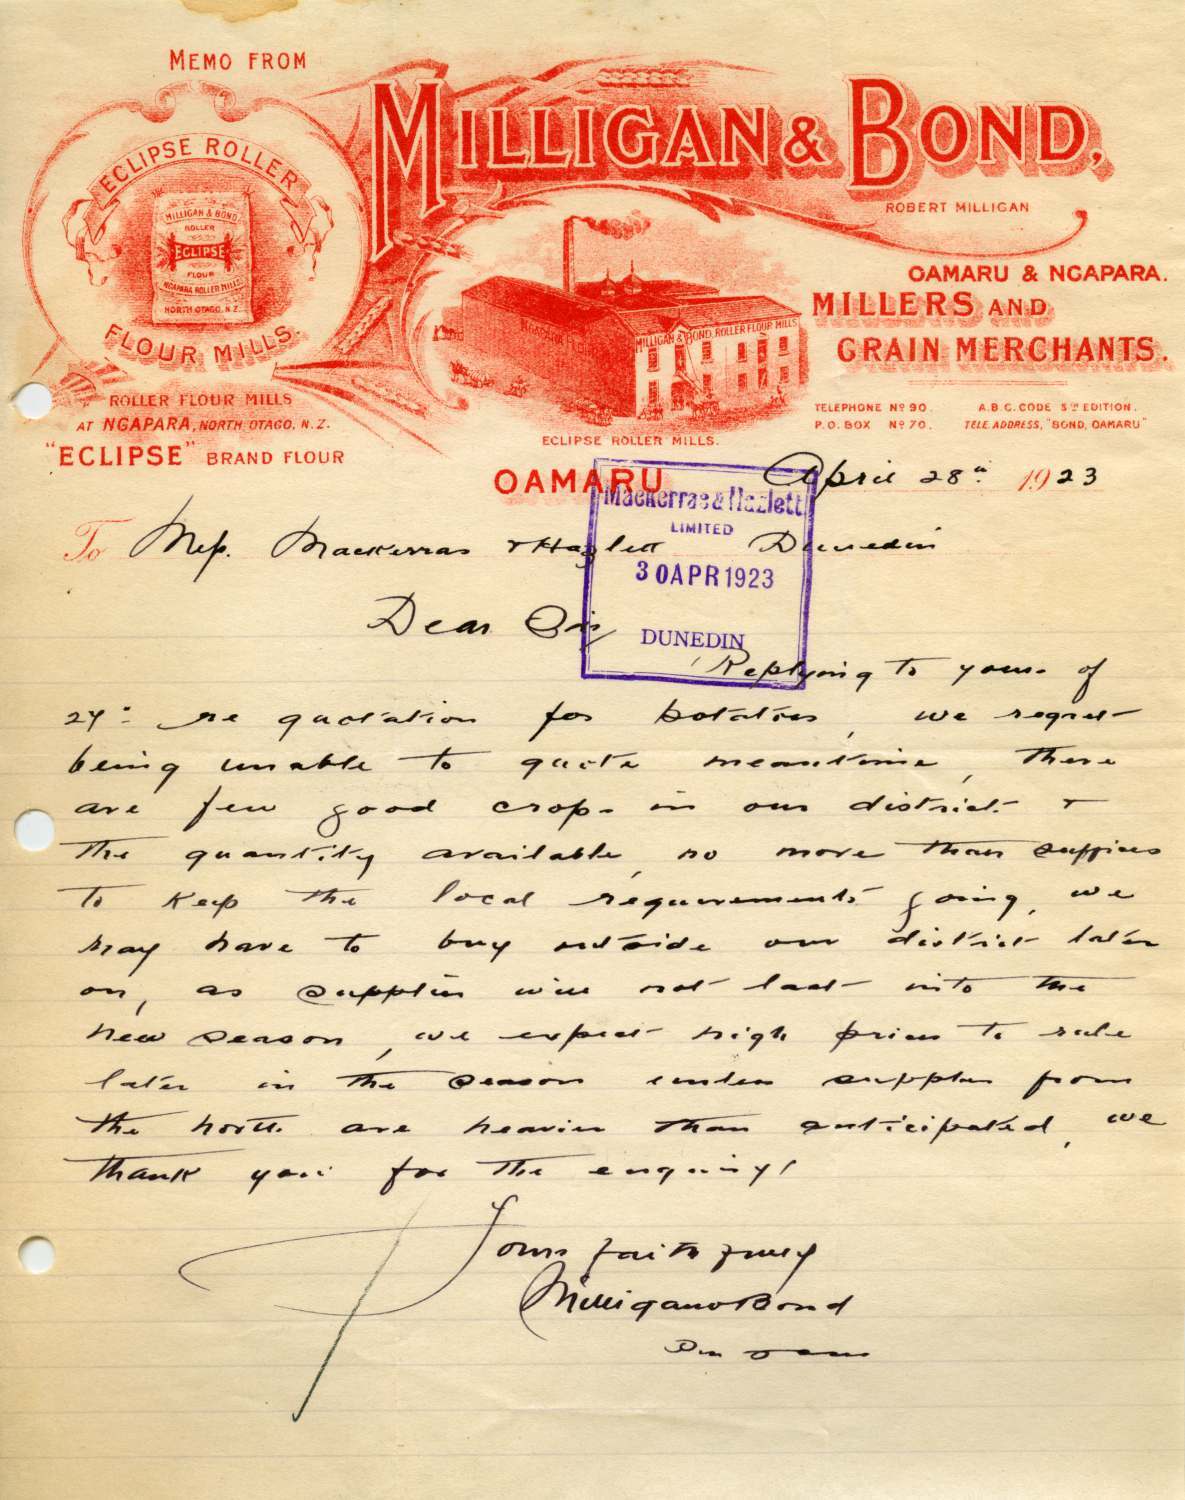 MEMO FROM
MILLIGAN & BOND,
ROBERT MILLIGAN
ECLIPSE ROLLER
MILLIGAN & BOND
ROLLER
ECLIPSE
FLOUR
NGAPARA ROLLER MILLS
NORTH OTAGO. N.Z.
FLOUR MILLS.
MILLIGAN & BOND, ROLLER FLOUR MILLS
OAMARU & NGAPARA.
MILLERS AND
GRAIN MERCHANTS.
ROLLER FLOUR MILLS
AT NGAPARA, NORTH OTAGO, N.Z.
"ECLIPSE" BRAND FLOUR
ECLIPSE ROLLER MILLS.
TELEPHONE Nº 90. A.B.C. CODE 5TH EDITION.
P.O. BOX Nº 70. TELE. ADDRESS, "BOND, OAMARU"
OAMARU April 28th 1923
Mackerras & Hazlett
LIMITED
30 APR 1923
DUNEDIN
To Messrs. Mackerras & Hazlett Dunedin
Dear Sir
Replying to yours of
27th re quotation for potatoes, we regret
being unable to quote meantime, there
are few good crops in our district &
the quantity available, no more than suffices
to keep the local requirements going, we
may have to buy outside our district later
on, as supplies will not last into the
new season, we expect high prices to rule
later in the season unless supplies from
the north are heavier than anticipated, we
thank you for the enquiry,
Yours faithfully
Milligan & Bond